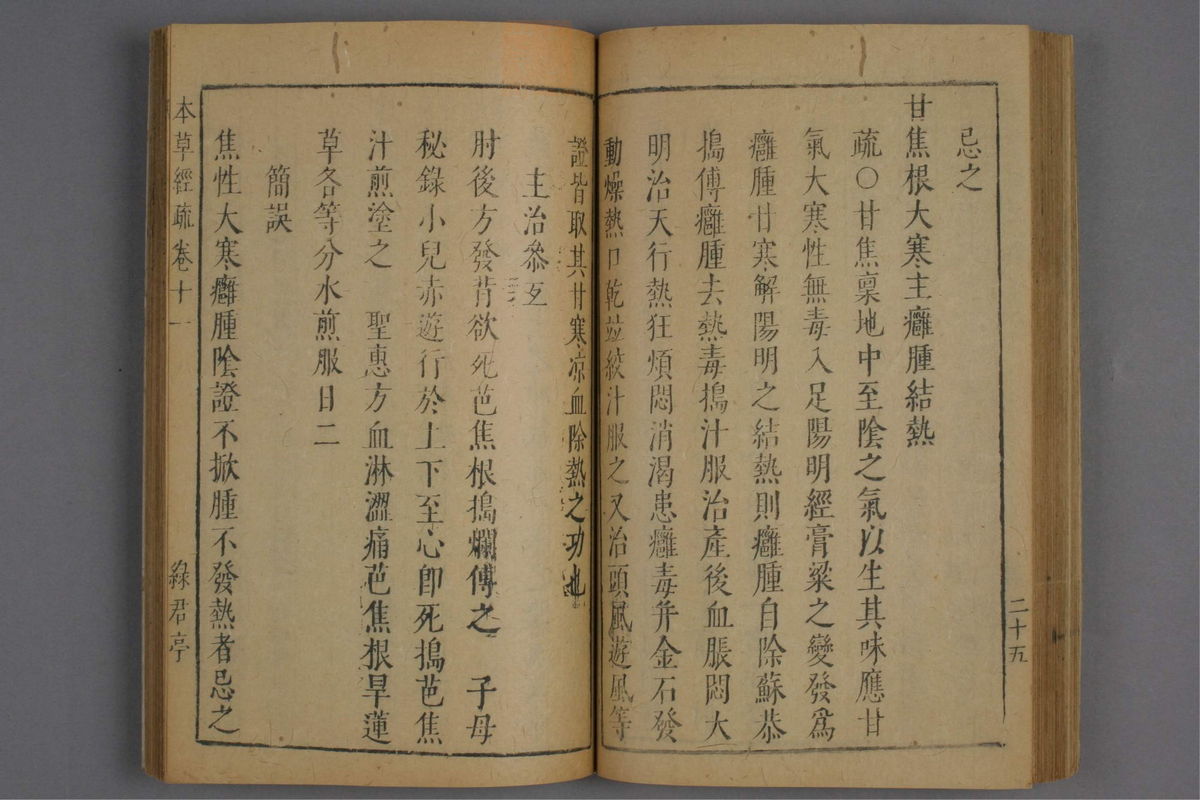 忌之
甘焦根大寒主癰腫結熱
疏○甘焦稟地中至陰之氣以生其味應甘
氣大寒性無毒入足陽明經膏粱之變發爲
癰腫甘寒解陽明之結熱則癰腫自除蘇恭
搗傅癰腫去熱毒搗汁服治產後血脹悶大
明治天行熱狂煩悶消渴患癰毒并金石發
動燥熱口乾並絞汁服之又治頭風遊風等
二十五
證皆取其甘寒凉血除熱之功也
主治叅互
肘後方發背欲死芭焦根搗爛傅之 子母
秘錄小兒赤遊行於上下至心卽死搗芭焦
汁煎塗之 聖惠方血淋澀痛芭焦根旱蓮
草各等分水煎服日二
簡誤
焦性大寒癰腫陰證不掀腫不發熱者忌之
本草經疏卷十一
綠君亭